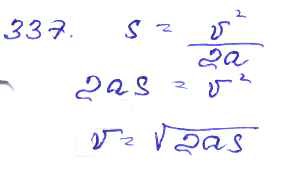 337. s = v²/2a
2as = v²
v = √2as